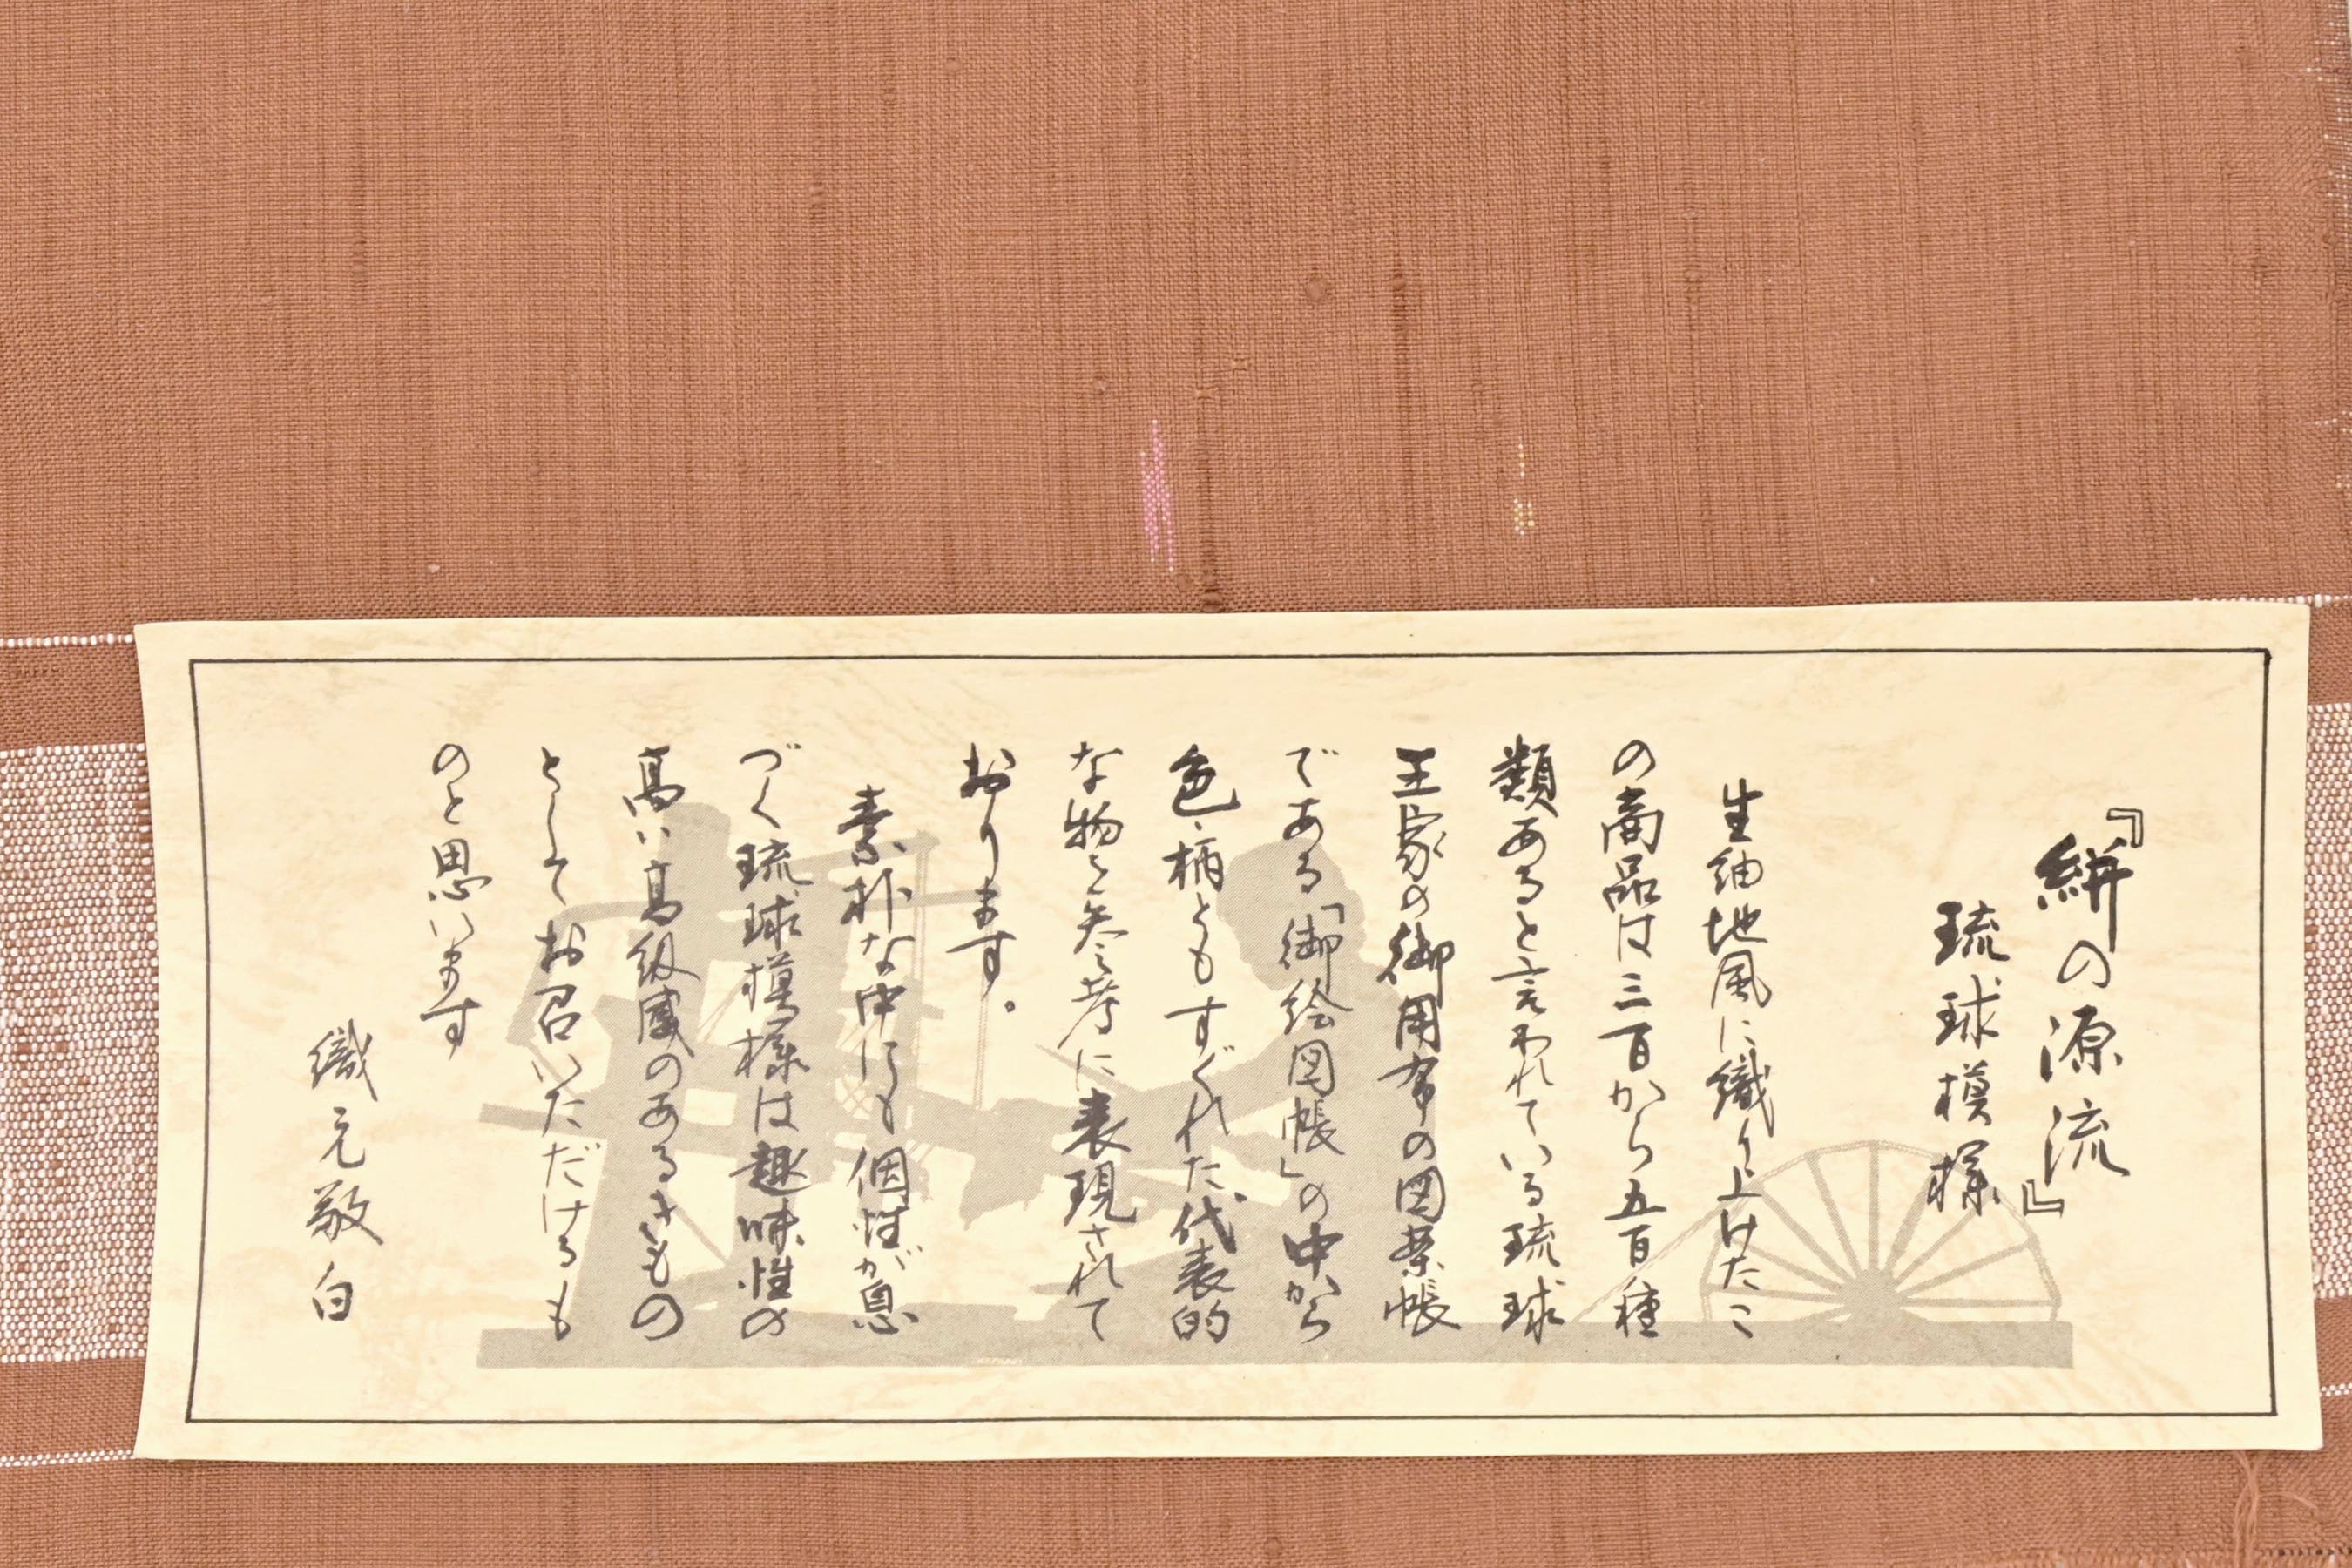 『絣の源流』
琉球模様
生紬地風に織り上げたこ
の商品は三百から五百種
類あると言われている琉球
王家の御用布の図案帳
である「御絵図帳」の中から
色、柄ともすぐれた代表的
な物を参考に表現されて
おります。
素朴な中にも個性が息
づく琉球模様は趣味性の
高い高級感のあるきもの
としてお召いただけるも
のと思います
織元敬白